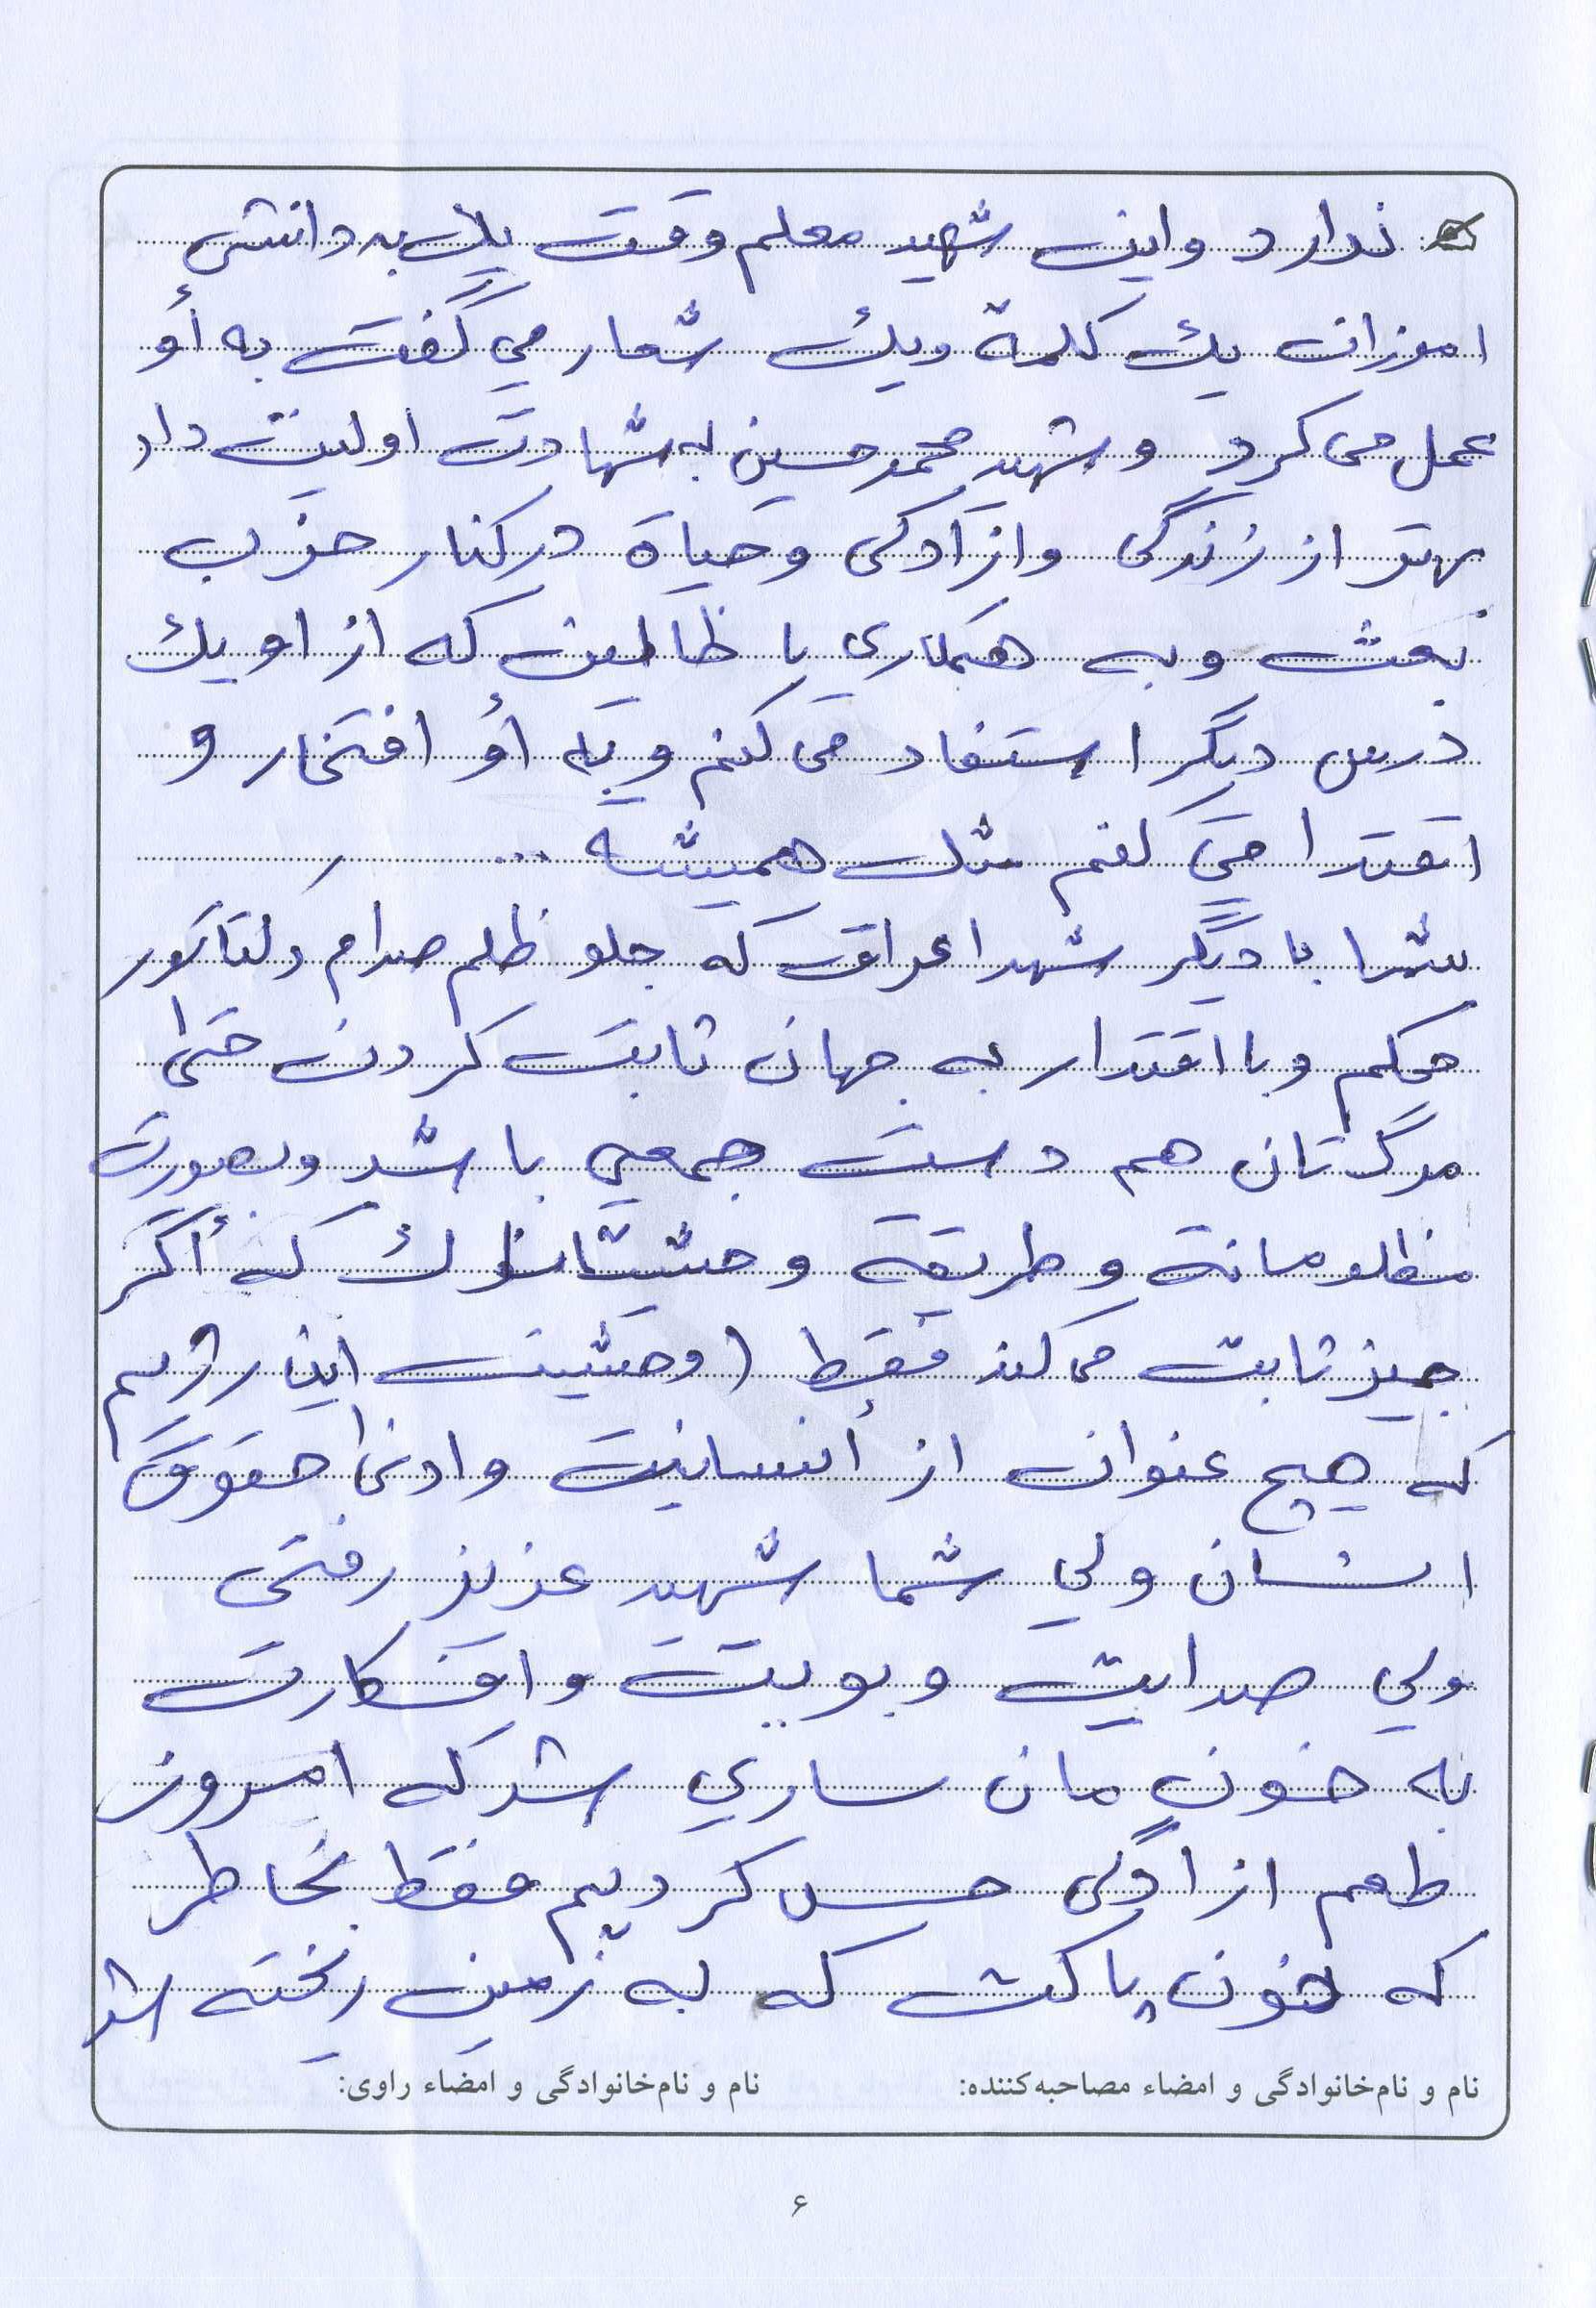 ندارد واین شهید معلم وقت یک به دانش
اموزان یك کلمة ویك شعار می گفت به أو
عمل می کرد و شهید محمد حسین به شهادت اولیت داد
بهتر از زندگی وازادگی وحیاة در کنار حزب
بعث وبه همکاري با ظالمین که از او یك
درس دیگر استفاد می کنم وبه أو افتخار و
اقتدا می کنم مثل همیشه ...
شما با دیگر شهدا عراق که جلو ظلم صدام دکتاتور
محکم وبا اقتدار به جهان ثابت کردن حتی
مرگ تان هم دست جمعي باشد وبصورت
مظلومانة و طریقة وحشتناك که أگر
چیز ثابت می کند فقط (وحشیت این رژیم
که هیچ عنوان از أنسانیت وادنی حقوق
انسان ولي شما شهید عزیز رفتی
ولي صدایت وبویت وافکارت
به خون مان ساري شد که امروز
طعم ازادگی حس کردیم فقط بخاطر
که خون پاکت که به زمین ریخته شد
نام و نام‌خانوادگی و امضاء مصاحبه‌کننده: نام و نام‌خانوادگی و امضاء راوی:
۶